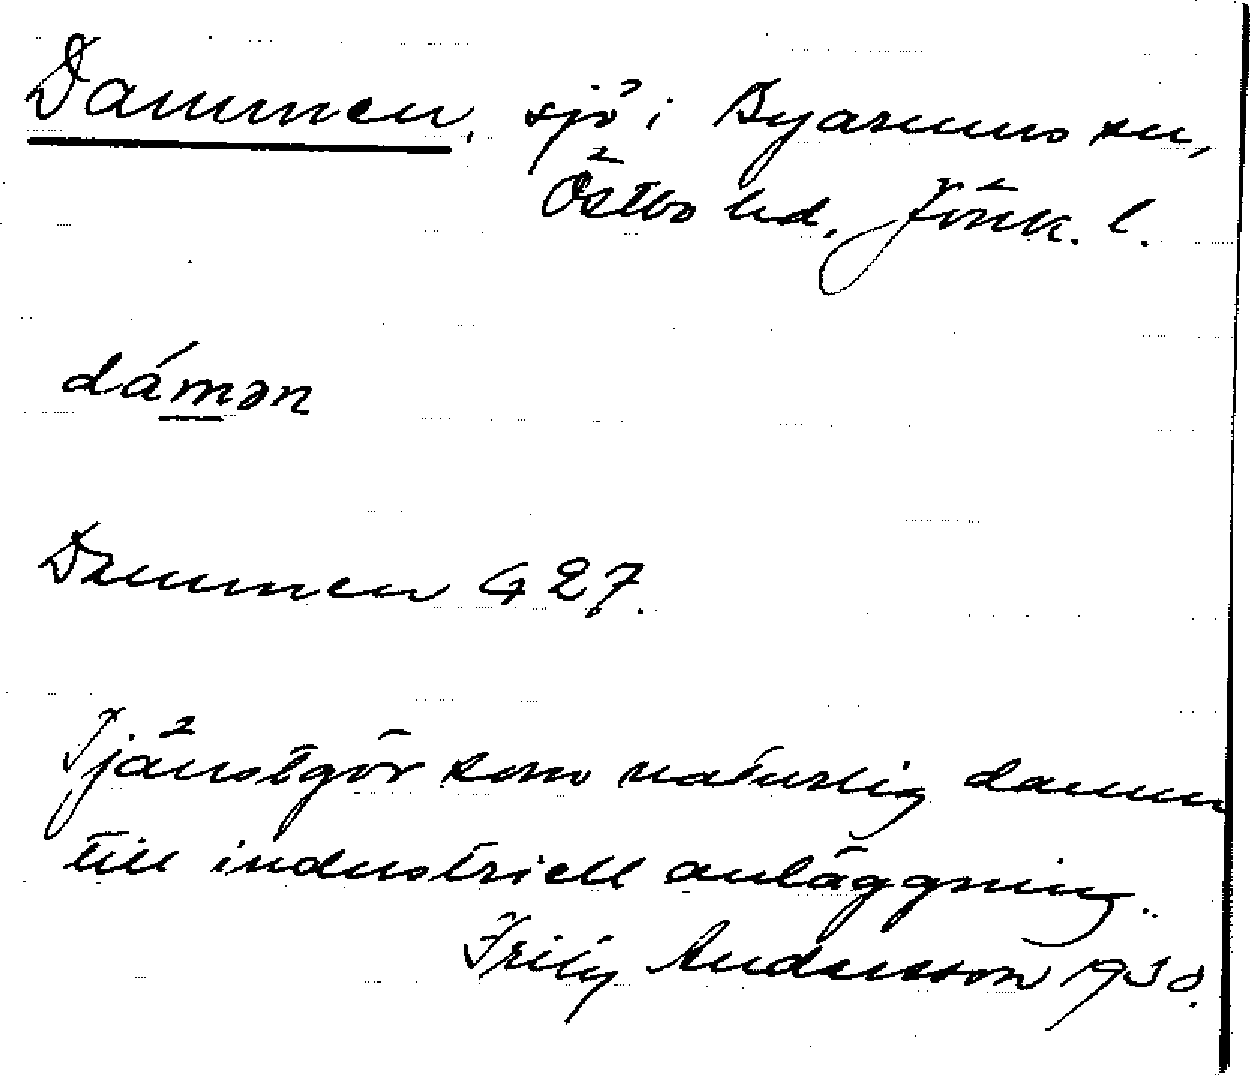 Dammen, sjö i Byarums sn,
Östbo hd, Jönk. l.
dámən
Dammen G 27.
Tjänstgör som naturlig damm
till industriell anläggning.
Andersson 1930.